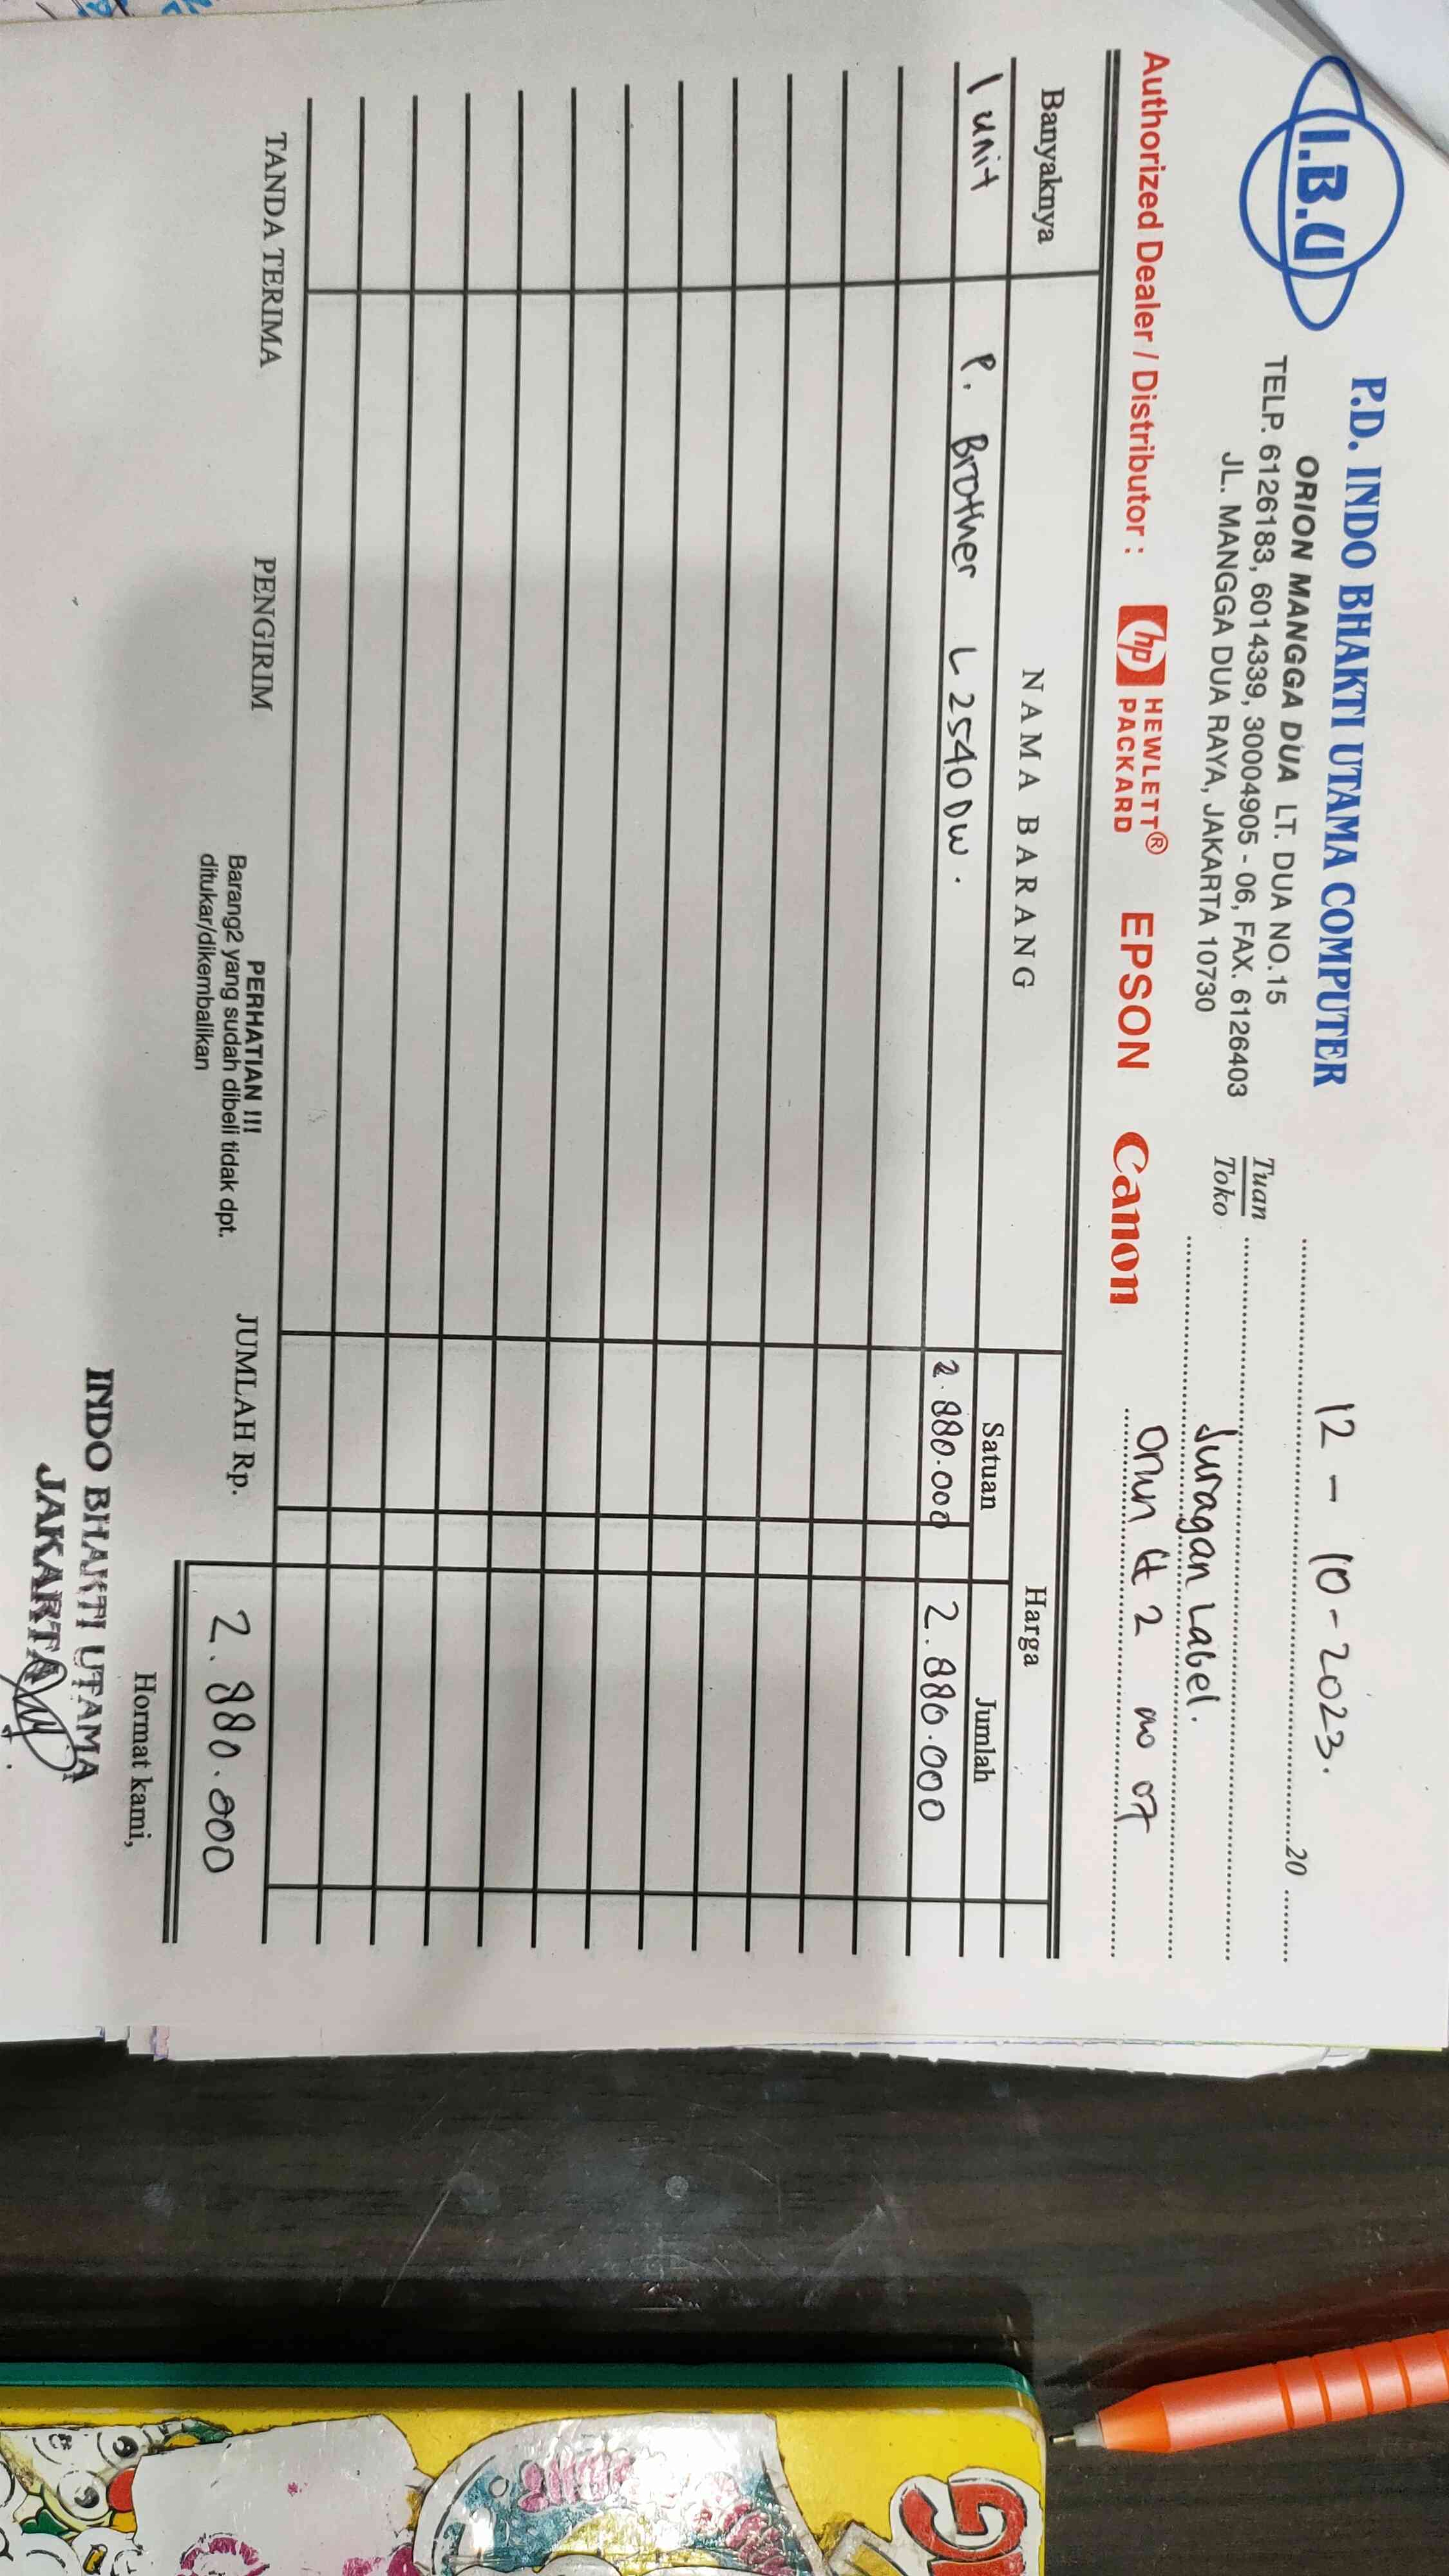 I.B.U
P.D. INDO BHAKTI UTAMA COMPUTER
ORION MANGGA DUA LT. DUA NO.15
TELP. 6126183, 6014339, 30004905 - 06, FAX. 6126403
JL. MANGGA DUA RAYA, JAKARTA 10730
12 - 10 - 2023. 20
Tuan
Toko
Juragan Label.
Orion lt 2 no 07
Authorized Dealer / Distributor : hp HEWLETT® PACKARD EPSON Canon
Banyaknya NAMA BARANG Harga
Satuan Jumlah
1 unit P. Brother L 2540 DW. 2.880.000 2.880.000
TANDA TERIMA PENGIRIM JUMLAH Rp. 2.880.000
PERHATIAN !!!
Barang2 yang sudah dibeli tidak dpt.
ditukar/dikembalikan
Hormat kami,
INDO BHAKTI UTAMA
JAKARTA